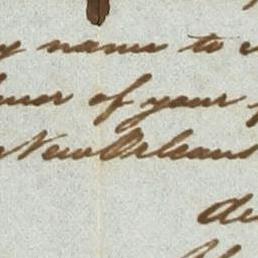 name to
of your
New Orleans
de